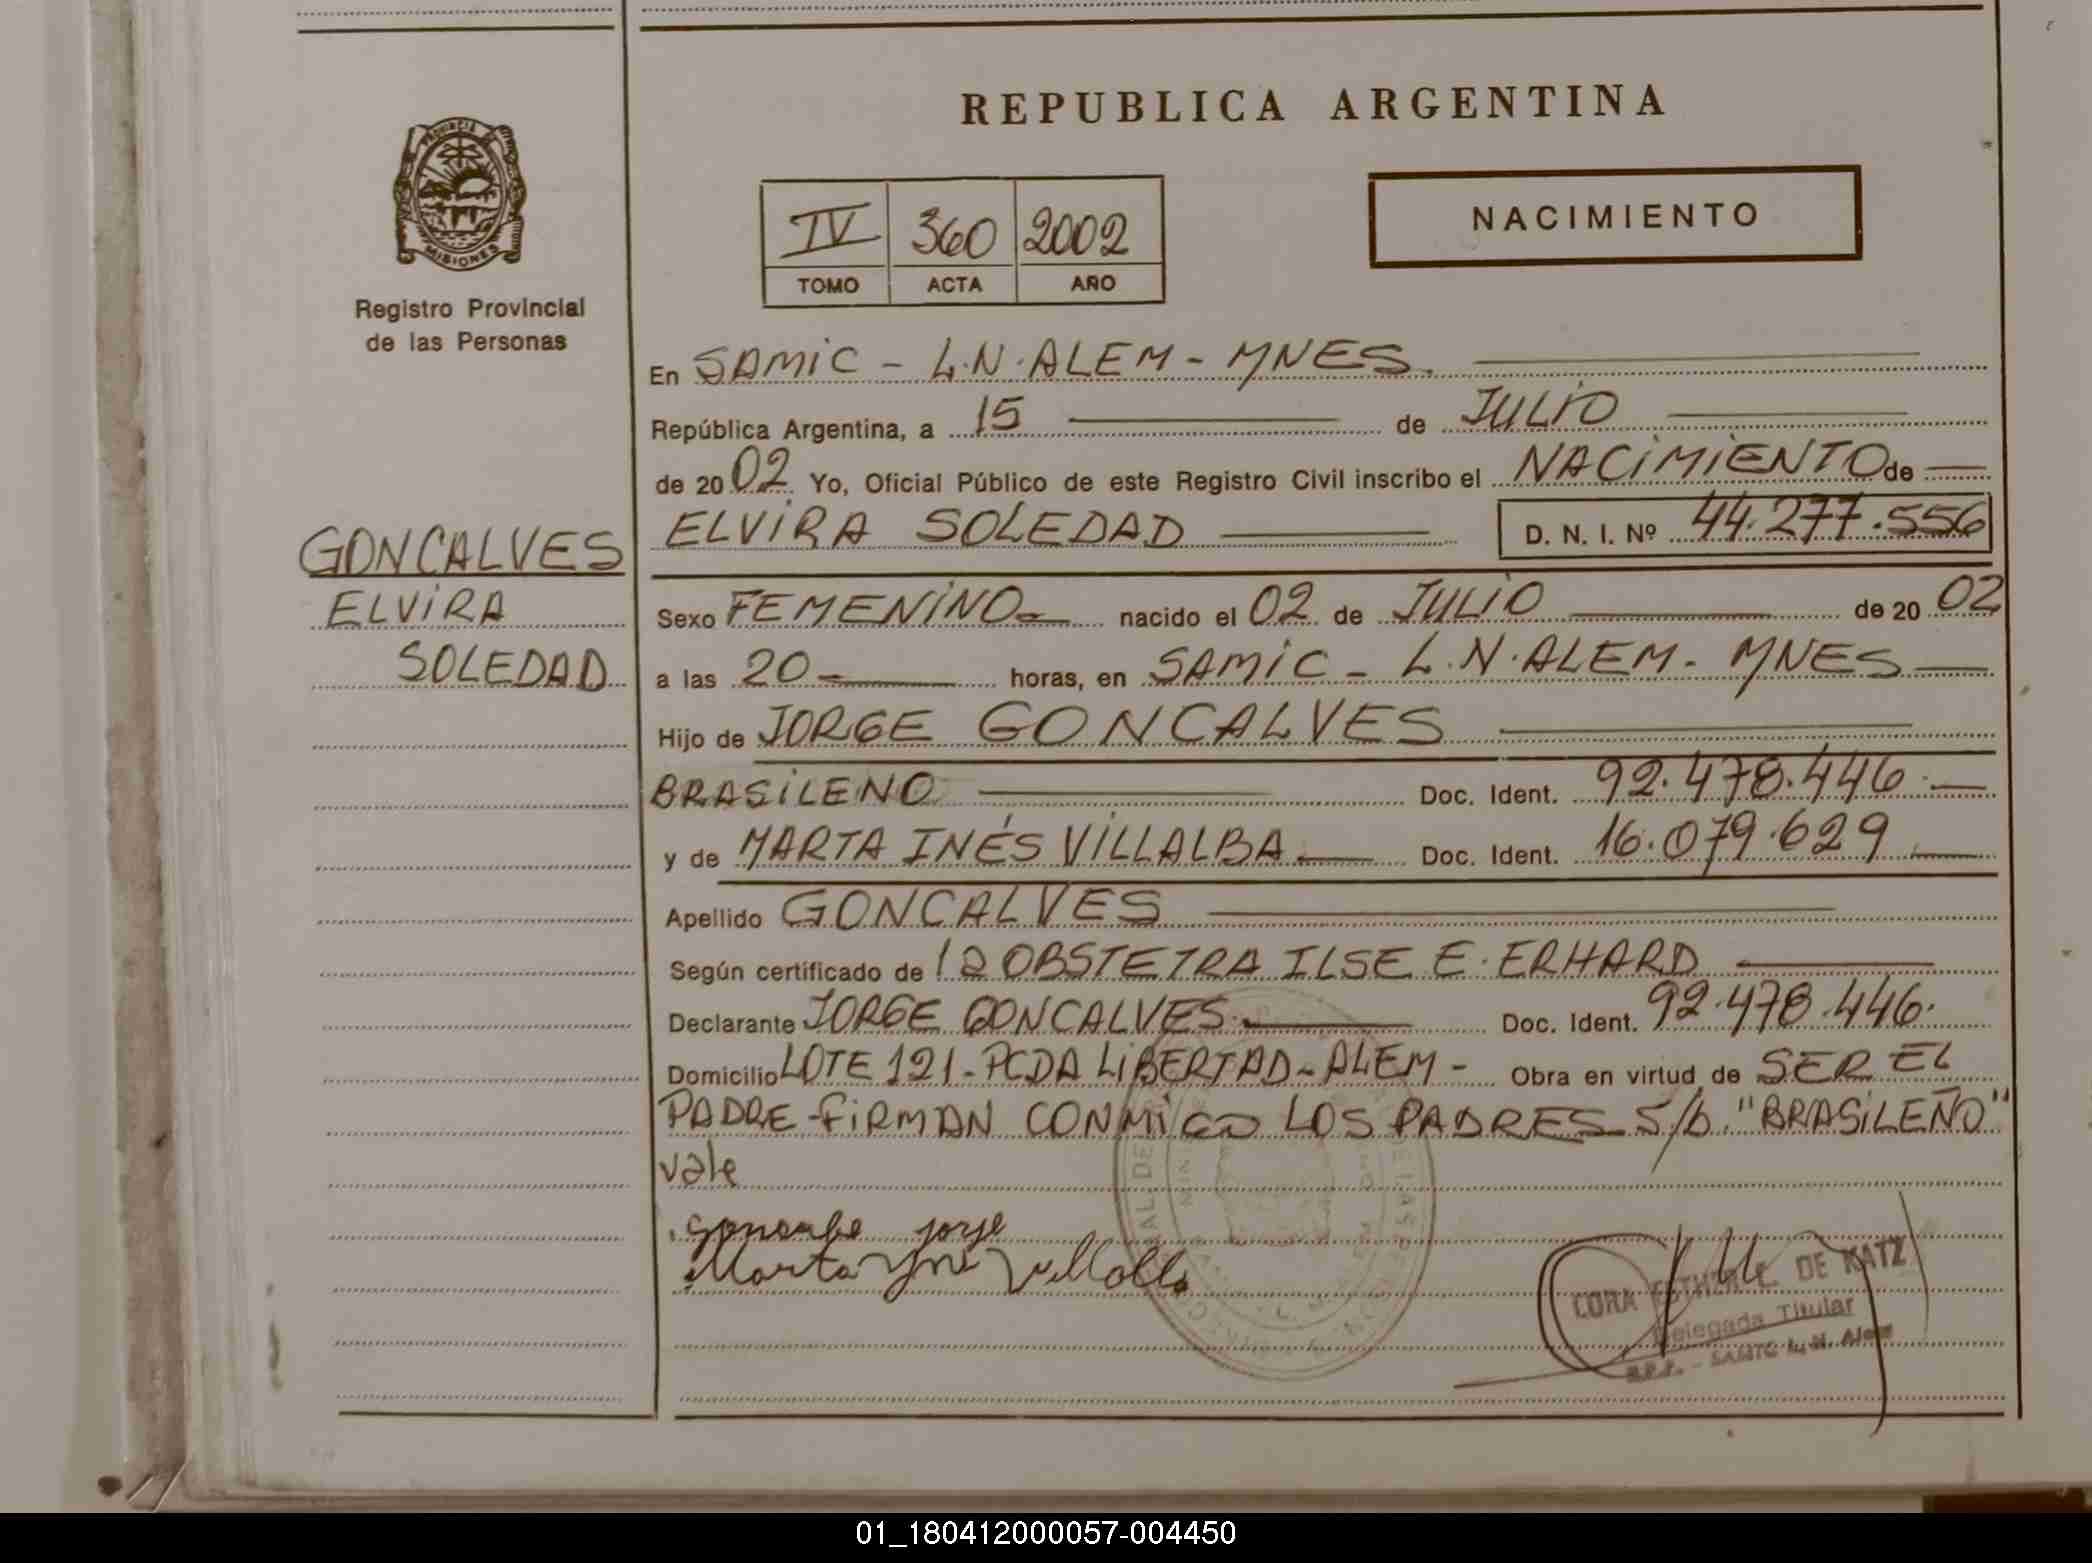 REPUBLICA ARGENTINA
PROVINCIA DE
MISIONES
Registro Provincial
de las Personas
IV 360 2002
TOMO ACTA AÑO
NACIMIENTO
En SAMIC - L.N. ALEM - MNES.
República Argentina, a 15 de JULIO
de 2002 Yo, Oficial Público de este Registro Civil inscribo el NACIMIENTO de
ELVIRA SOLEDAD D. N. I. Nº 44.277.556
GONCALVES
ELVIRA
SOLEDAD
Sexo FEMENINO nacido el 02 de JULIO de 2002
a las 20 horas, en SAMIC - L.N. ALEM - MNES
Hijo de JORGE GONCALVES
BRASILENO Doc. Ident. 92.478.446.
y de MARTA INÉS VILLALBA Doc. Ident. 16.079.629
Apellido GONCALVES
Según certificado de la OBSTETRA ILSE E. ERHARD
Declarante JORGE GONCALVES Doc. Ident. 92.478.446.
Domicilio LOTE 121 - PCDA LIBERTAD - ALEM - Obra en virtud de SER EL
PADRE - FIRMAN CONMIGO LOS PADRES S/b. "BRASILEÑO"
vale
Gonsalve jorje
Marta Ynes Villalba
CORA ESTHER L. DE KATZ
Delegada Titular
R.P.P. - SAMIC L. N. Alem
01_180412000057-004450